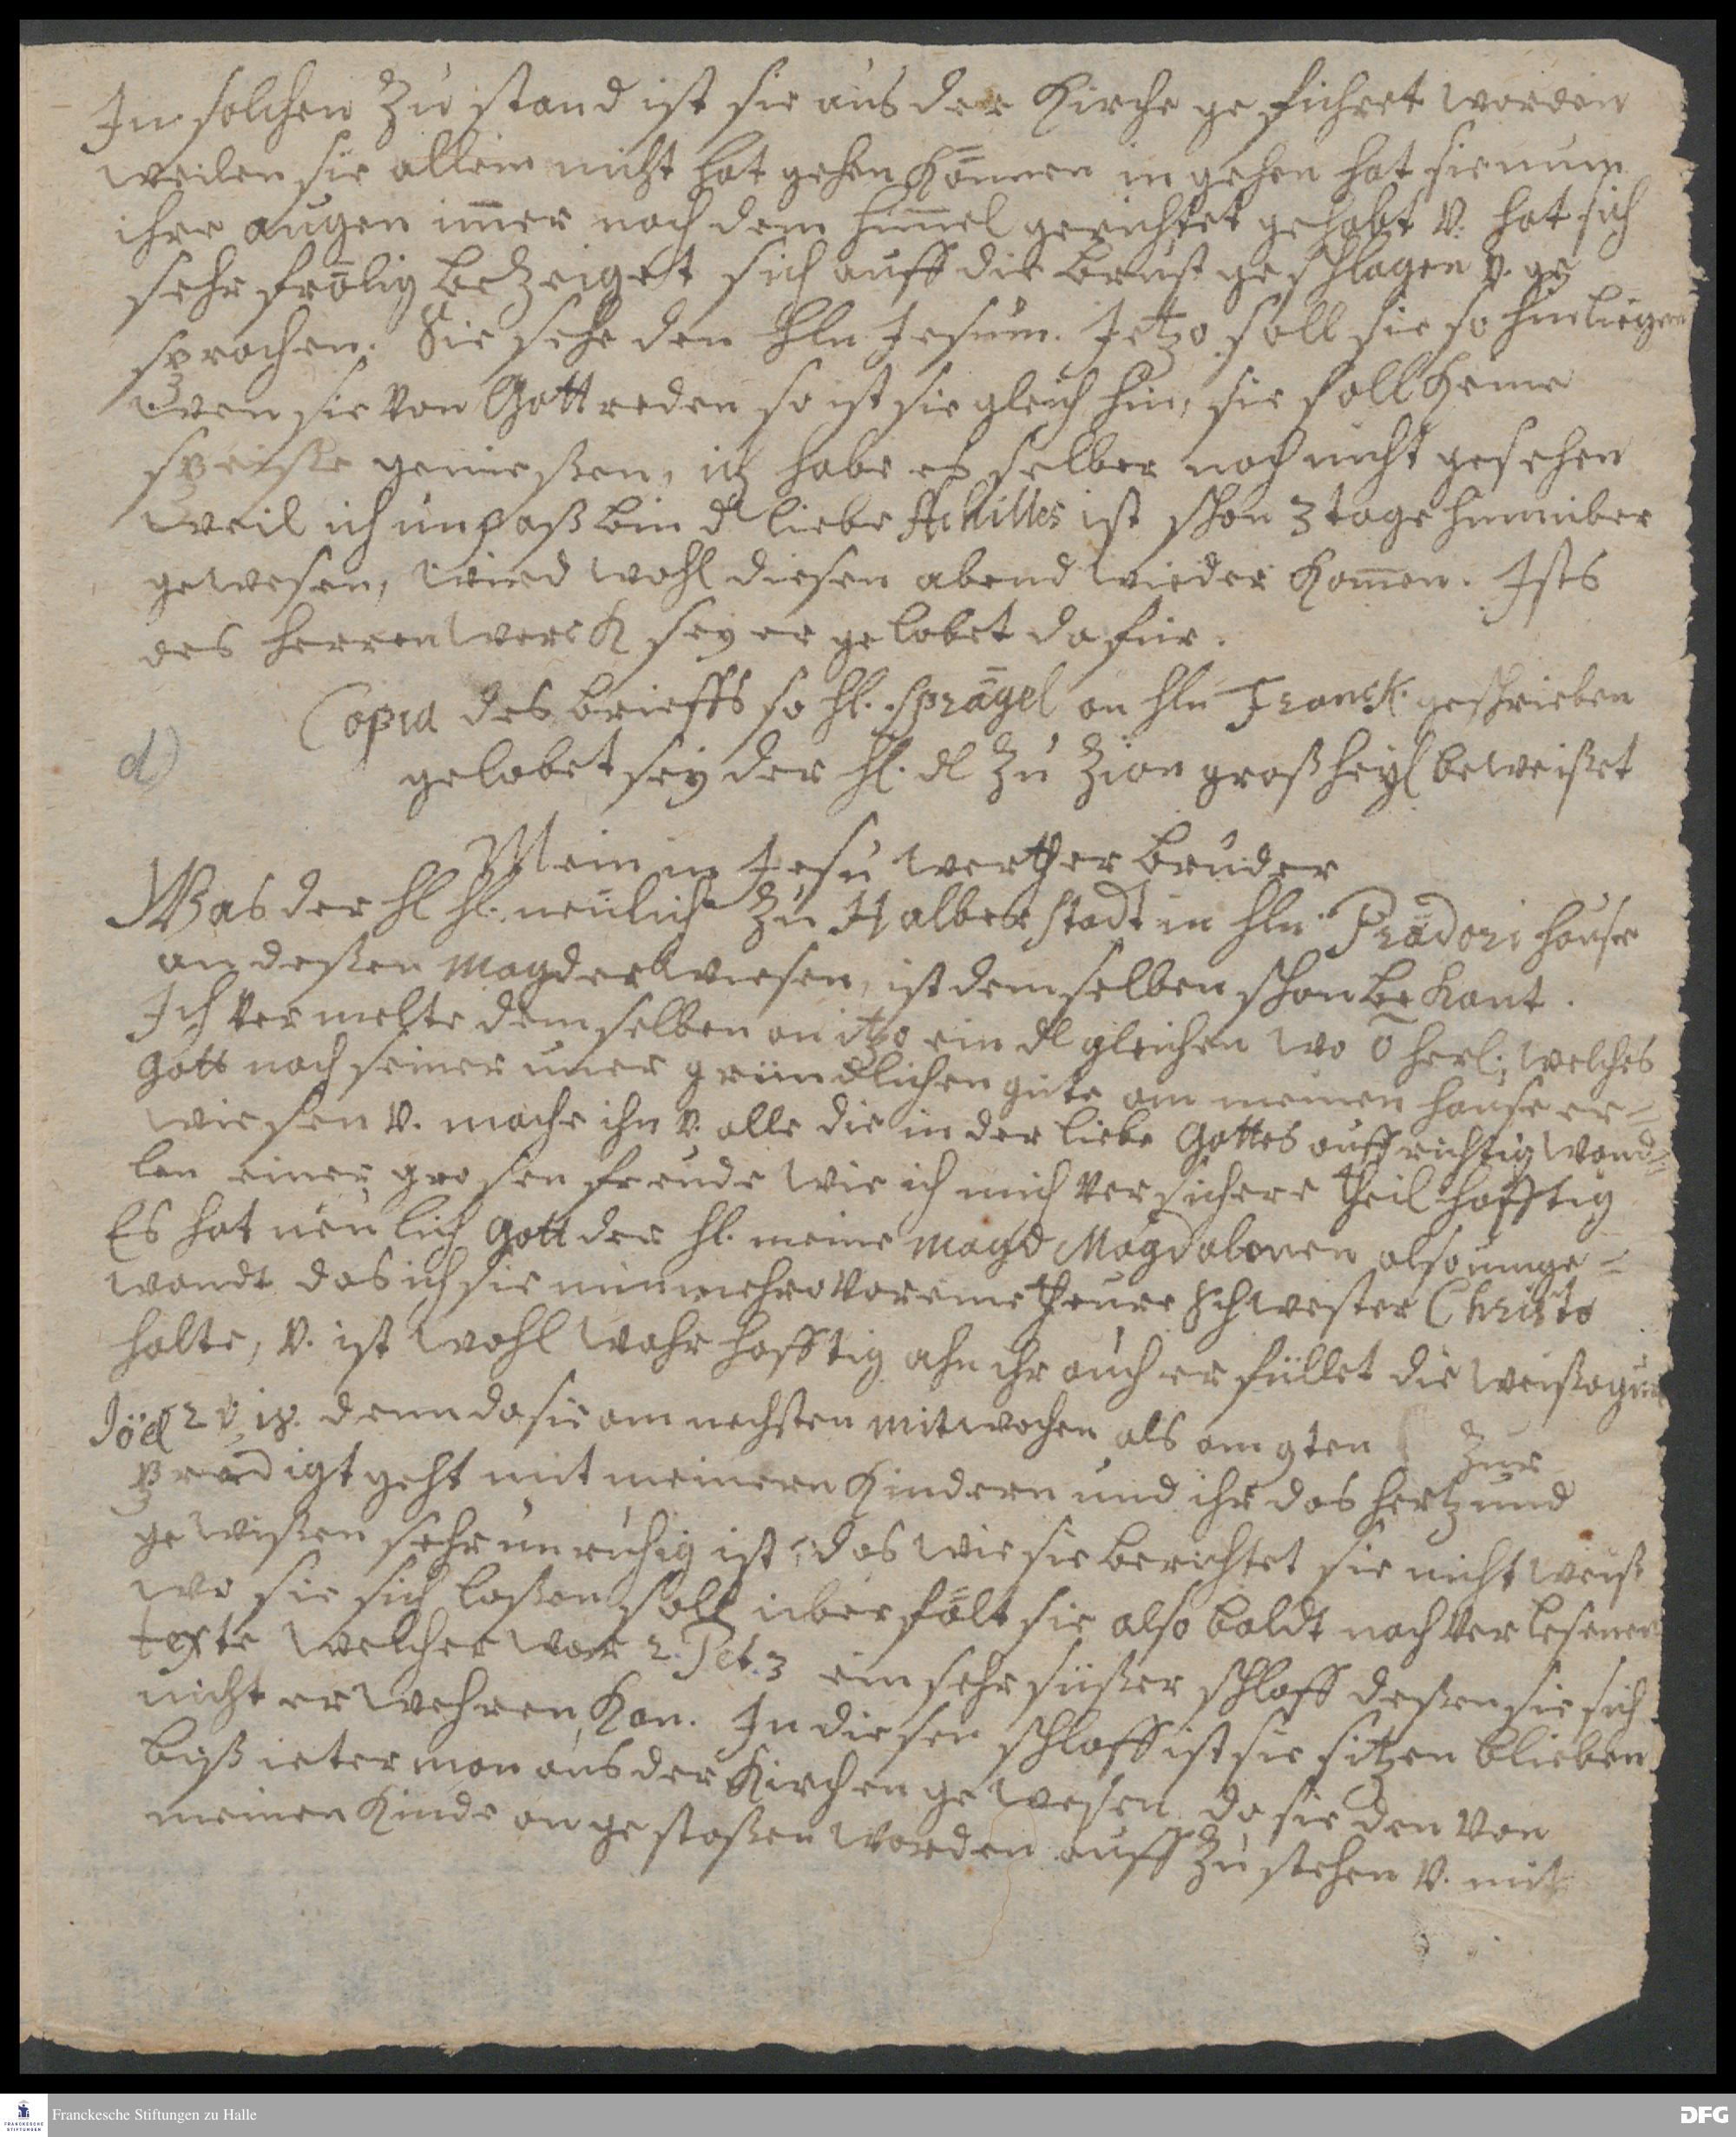 In solchen Zu stand ist sie aus der Kirche ge fichret worden
weilen sie allein nicht hat gehen können in gehen hat sie nun
ihre augen im̄er nach dem him̄el gerichtet gehabt v. hat sich
sehr frölig bezeiget sich auff die brust geschlagen v. ge
sprochen. Sie sehe den Hln Jesum. Jetzo soll sie so hin liegen
wen sie von Gott reden so ist sie gleich hin, sie soll keine
speisse genießen, ich habe es selber noch nicht gesehen
weil ich unpaß bin dl liebe Achilles ist schon 3 tage hinniber
gewesen, wird wohl diesen abend wieder kom̄en. Ists
des Herren werck sey er gelobet dafür.
Copia des brieffs so Hl. Sprägel an Hln Franck. geschrieben
d)
gelobet sey der Hl. dl Zu Zion groß heyl beweißet
Mein in Jesu werther bruder
Was der Hl Hl. neulich Zu Halberstadt in Hln Prädori hause
an deßen magd erwiesen, ist demselben schon bekant.
Ich vermelte demselben an itzo ein dl gleichen wo ō herl. welches
Gott nach seiner uner gründlichen güte an meinen hause er=
wiesen v. mache ihn v. alle die in der liebe Gottes auffrichtig wand=
len einer grosen freude wie ich mich versichere theilhafftig
Es hat neulich Gott der Hl. meine magd Magdalenen also umge=
wandt das ich sie nunmehro vor eine theure Schwester Christo
halte, v. ist wohl wahrhafftig ahn ihr auch erfüllet die weißagung
Jöel 2 v. 18. denn da sie am nechsten mitwochen als am 9ten Zur
predigt geht mit meinern Kindern und ihr das hertz und
gewißen sehr unruhig ist, das wie sie berichtet sie nicht weiß
wo sie sich laßen soll überfält sie also baldt nach verlesenen
texte welcher war 2. Pet. 3 ein sehr süßer schlaff deßen sie sich
nicht erwehren kan. In diesen schlaff ist sie sitzen blieben
biß ieterman aus der Kirchen gewesen, da sie den von
meinen Kinde angestoßen worden auff Zu stehen v. mit
Franckesche Stiftungen zu Halle
FRANCKESCHE
STIFTUNGEN
DFG